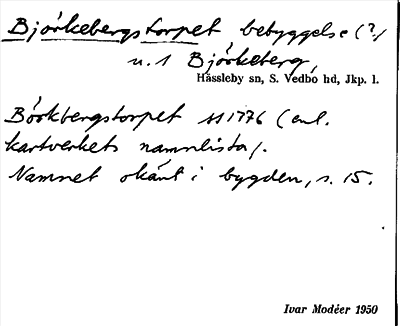 Björkebergstorpet bebyggelse (?)
u. 1 Björkeberg,
Hässleby sn, S. Vedbo hd, Jkp. l.
Börkbergstorpet 1776 (enl.
kartverkets namnlista).
Namnet okänt i bygden, s. 15.
Ivar Modéer 1950